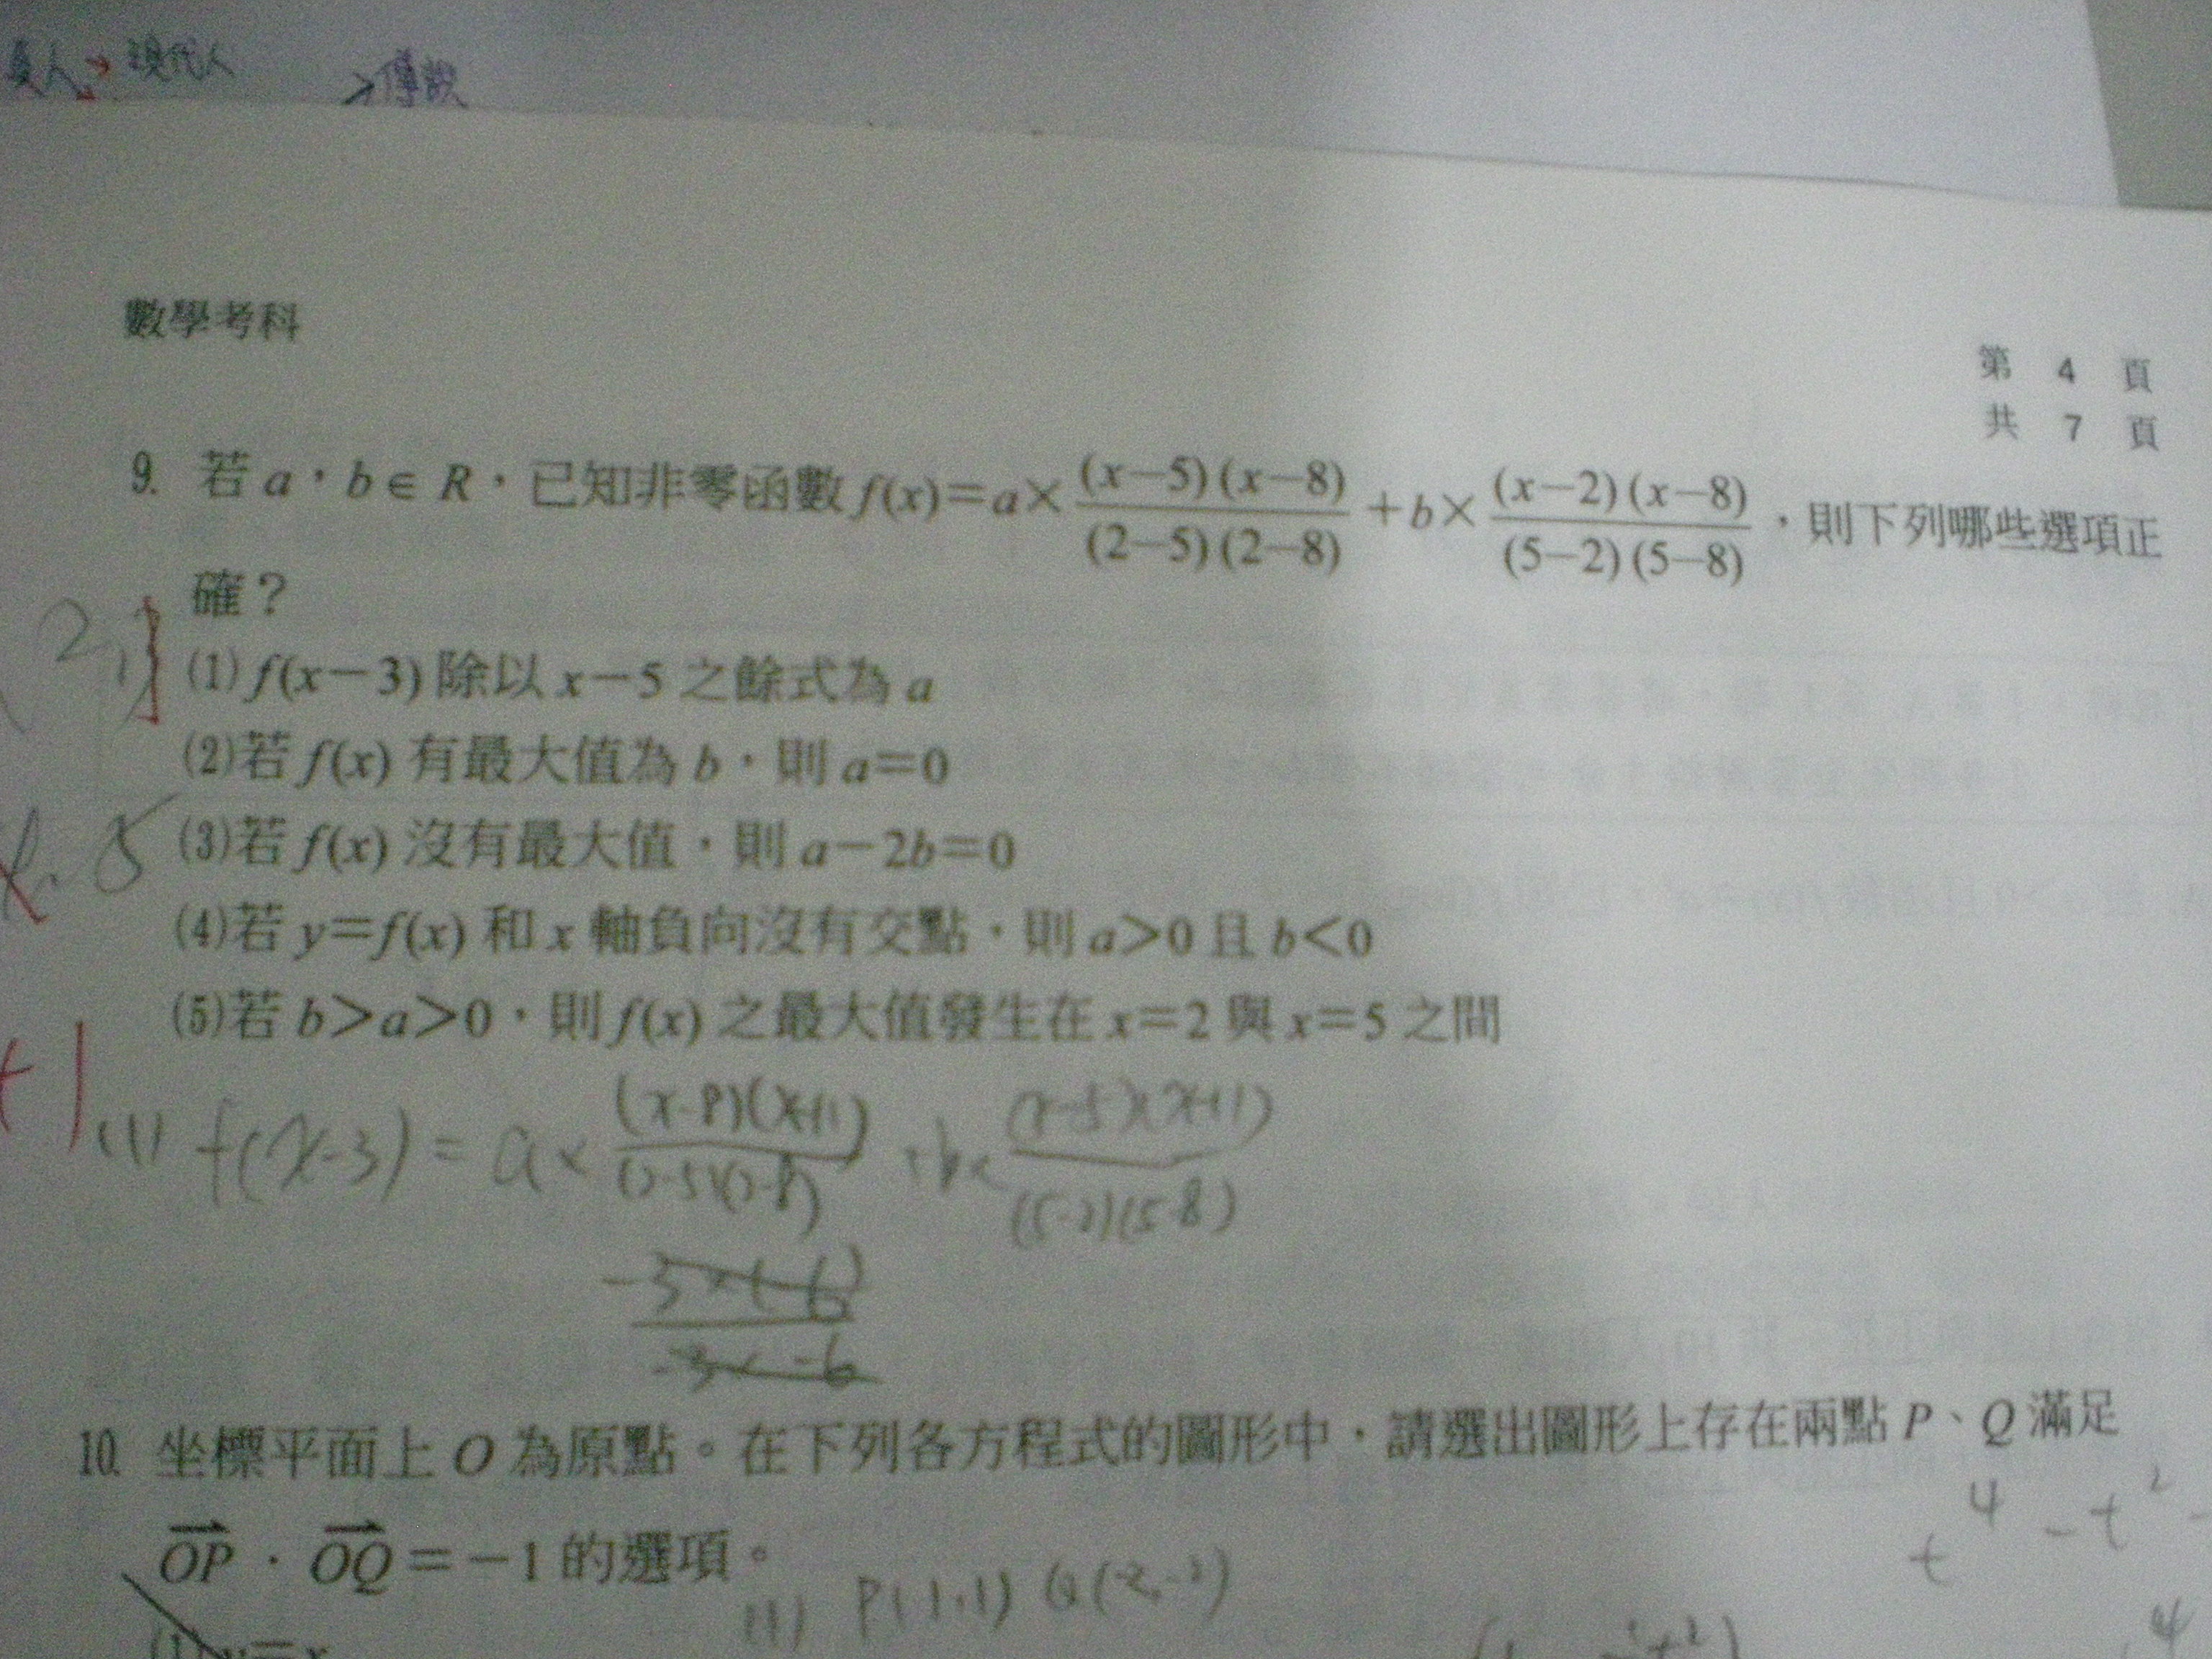 夏人→現代人
→傳說
數學考科
第 4 頁
共 7 頁
9. 若 a，b∈R，已知非零函數 f(x)=a×\frac{(x-5)(x-8)}{(2-5)(2-8)}+b×\frac{(x-2)(x-8)}{(5-2)(5-8)}，則下列哪些選項正
確？
(1) f(x-3) 除以 x-5 之餘式為 a
(2)若 f(x) 有最大值為 b，則 a=0
(3)若 f(x) 沒有最大值，則 a-2b=0
(4)若 y=f(x) 和 x 軸負向沒有交點，則 a>0 且 b<0
(5)若 b>a>0，則 f(x) 之最大值發生在 x=2 與 x=5 之間
(1) f(x-3)=a×\frac{(x-8)(x-11)}{(2-5)(2-8)}+b×\frac{(x-5)(x-11)}{(5-2)(5-8)}
-3×(-6)
-3×-6
10. 坐標平面上 O 為原點。在下列各方程式的圖形中，請選出圖形上存在兩點 P、Q 滿足
t⁴-t²-
OP · OQ=-1 的選項。
(1) P(1,1)
(1) y=x